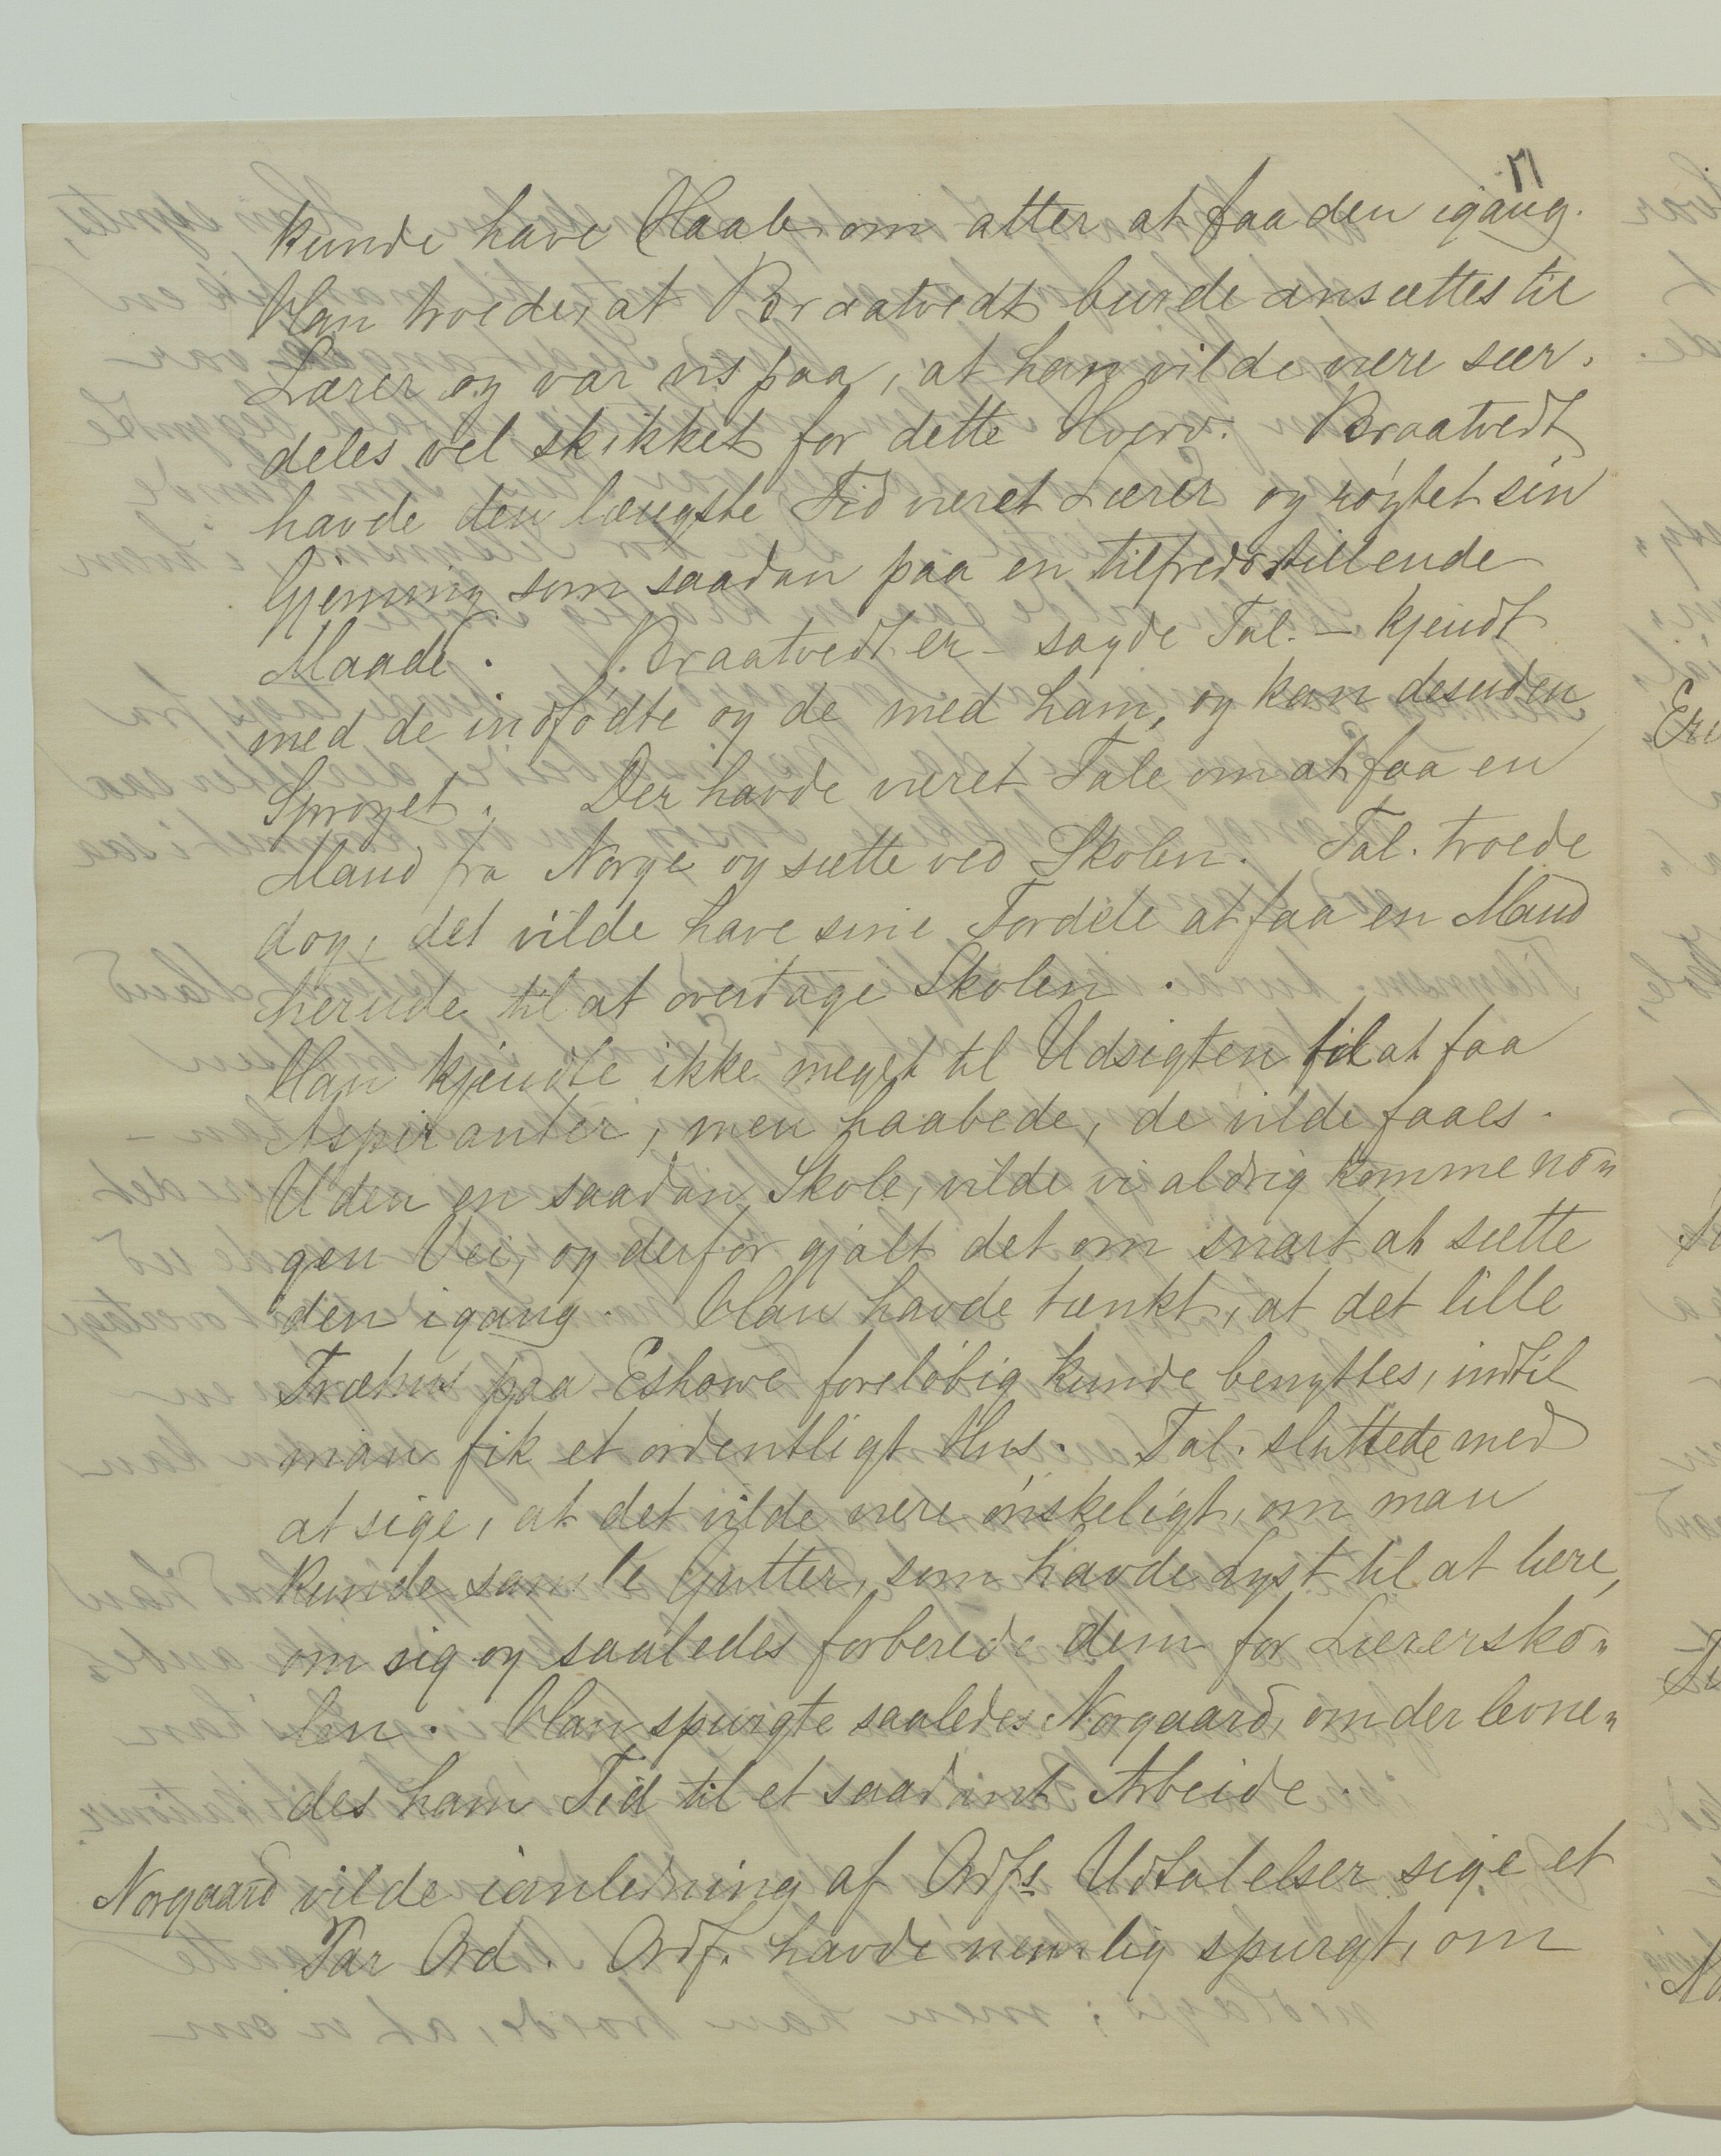 kunde have Haab om atter at faa den igang.
Han troede, at Braatvedt burde ansættes til
Lærer og var vis paa, at han vilde være sær-
deles vel skikket for dette Hverv. Braatvedt
havde den længste Tid været Lærer og røgtet sin
Gjerning som saadan paa en tilfredsstillende
Maade. Braatvedt er – sagde Tal. – kjendt
med de indfødte og de med ham, og kan desuden
Sproget. Der havde været Tale om at faa en
Mand fra Norge og sætte ved Skolen. Tal. troede
dog, det vilde have sine Fordele at faa en Mand
herude til at overtage Skolen.
Han kjendte ikke meget til Udsigten til at faa
Aspiranter, men haabede, de vilde faaes.
Uden en saadan Skole, vilde vi aldrig komme no„
gen Vei, og derfor gjalt det om snart at sætte
den igang. Han havde tænkt, at det lille
Træhus paa Eshowe foreløbig kunde benyttes, indtil
man fik et ordentligt Hus. Tal. sluttede med
at sige, at det vilde være ønskeligt, om man
kunde samle Gutter, som havde Lyst til at lære,
om sig og saaledes forberede dem for Lærersko„
len. Han spurgte saaledes Norgaard, om der levne„
des ham Tid til et saadant Arbeide.
Norgaard vilde ianledning af Ordfs Udtalelser sige et
Par Ord. Ordf. havde nemlig spurgt, om